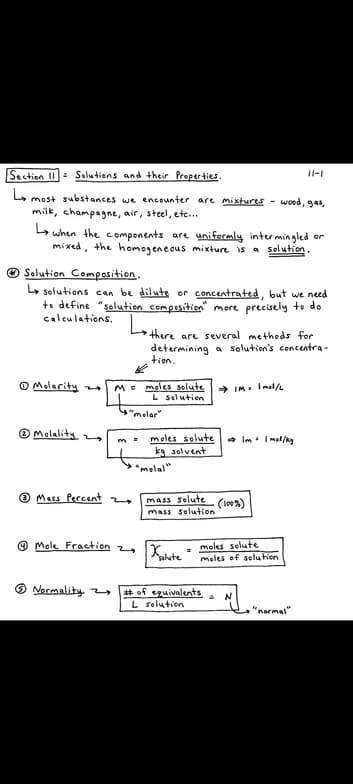 Section 11 = Solutions and their Properties. 11-1
↳ most substances we encounter are mixtures - wood, gas,
milk, champagne, air, steel, etc...
↳ when the components are uniformly intermingled or
mixed, the homogeneous mixture is a solution.
* Solution Composition.
↳ solutions can be dilute or concentrated, but we need
to define "solution composition" more precisely to do
calculations.
↳ there are several methods for
determining a solution's concentra-
tion.
① Molarity → M = moles solute / L solution ⇒ 1M = 1 mol/L
↳ "molar"
② Molality → m = moles solute / kg solvent ⇒ 1m = 1 mol/kg
↳ "molal"
③ Mass Percent → mass solute / mass solution (100%)
④ Mole Fraction → X solute = moles solute / moles of solution
⑤ Normality → # of equivalents / L solution = N
↳ "normal"